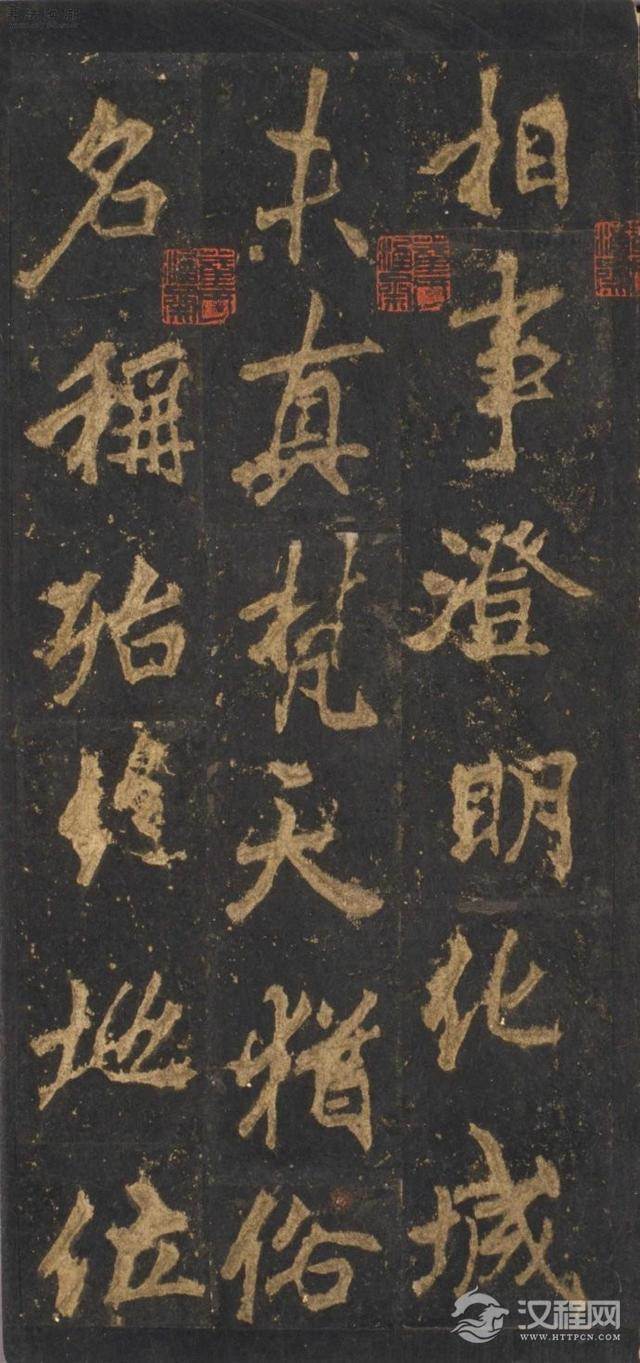 相事澄明化城
未真梵天猶俗
名稱殆絕地位
汉程网
WWW.HTTPCN.COM